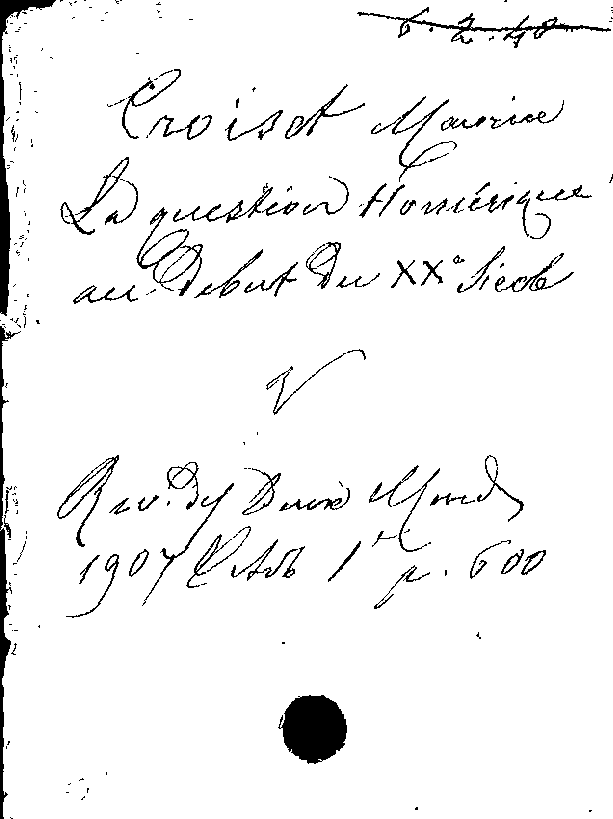 6.2.48
Croiset Maurice
La question Homérique
au Début Du XXe Siecle
V
Rev. des Deux Mondes
1907 Octob 1er p. 600